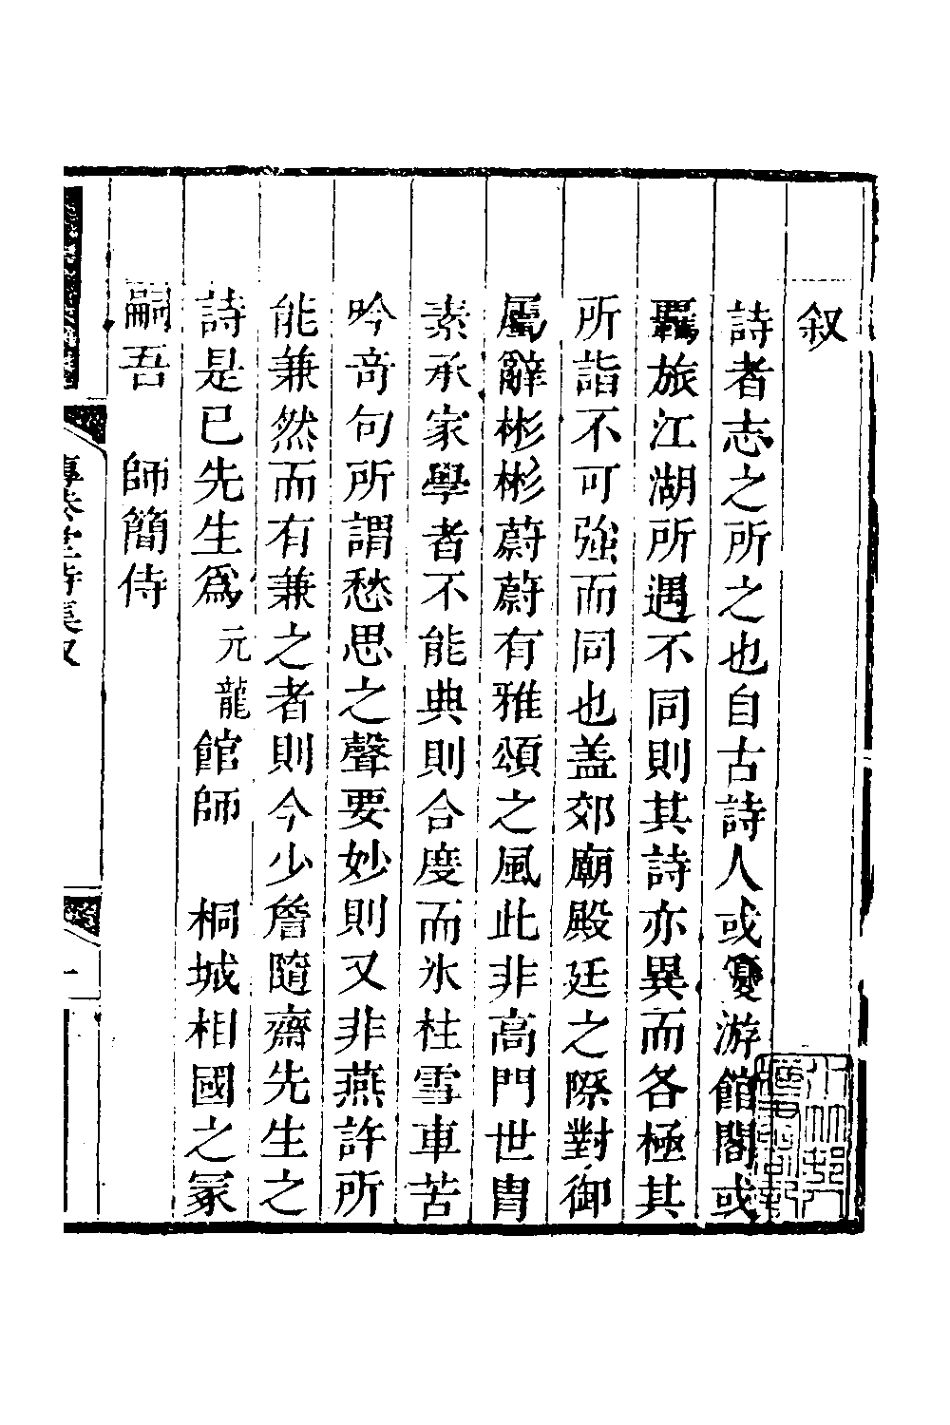 叙
詩者志之所之也自古詩人或優游館閣或
羈旅江湖所遇不同則其詩亦異而各極其
所詣不可強而同也盖郊廟殿廷之際對御
屬辭彬彬蔚蔚有雅頌之風此非高門世胄
素承家學者不能典則合度而氷柱雪車苦
吟竒句所謂愁思之聲要妙則又非燕許所
能兼然而有兼之者則今少詹隨齋先生之
詩是已先生爲元龍館師　桐城相國之冡
嗣吾　師簡侍